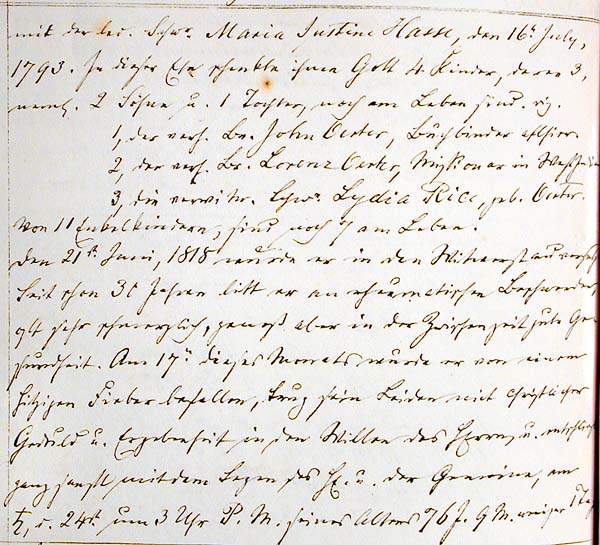 mit der led. Schwr. Maria Justina Hasse, den 16t July,
1793. In dieser Ehe schenkte ihnen Gott 4 Kinder, deren 3,
neml. 2 Söhne u. 1 Tochter, noch am Leben sind. viz.
1, der verh. Br. John Oerter, Buchbinder allhier.
2, der verh. Br. Lorenz Oerter, Missionar in Westindien
3, die verwitw. Schwr. Lydia Rice, geb. Oerter.
Von 11 Enkelkindern, sind noch 7 am Leben.
Den 21ten Juni, 1818 wurde er in den Witwerstand versetzt
Seit schon 30 Jahren litt er an rheumatischen Beschwerden,
oft sehr schmerzlich, genoß aber in der Zwischenzeit gute Ge-
sundheit. Am 17n dieses Monats wurde er von einem
hitzigen Fieber befallen, trug sein Leiden mit christlicher
Geduld u. Ergebenheit in den Willen des Herrn, u. entschlief
ganz sanft mit dem Segen des Hs. u. der Gemeine, am
♄, d. 24t. um 3 Uhr P. M. seines Alters 76 J. 9 M. weniger 1 Tag